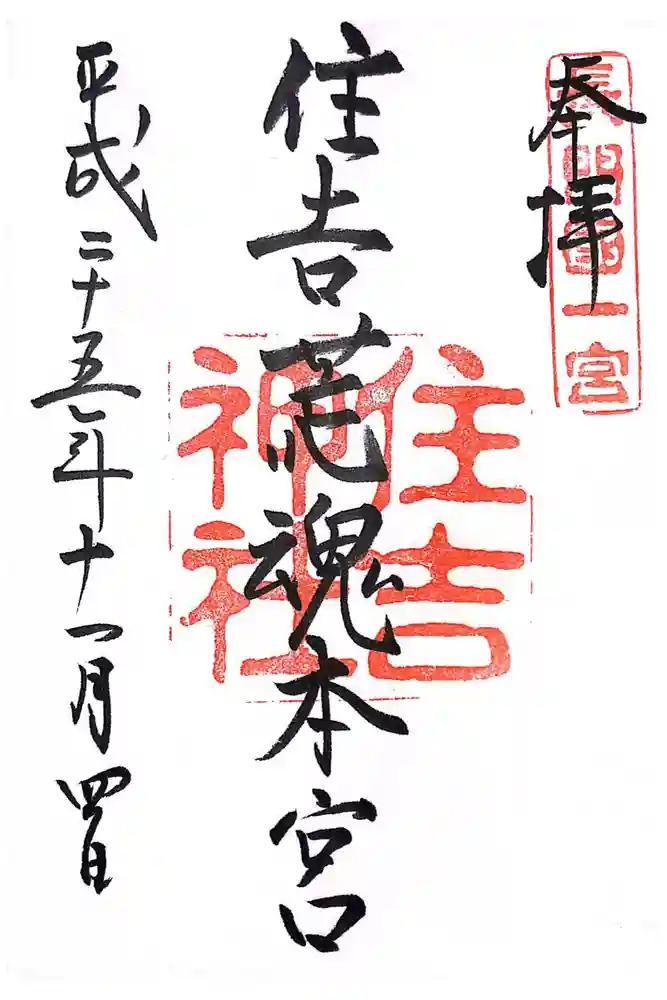 奉拝
長門国一宮
住吉荒魂本宮
住吉
神社
平成二十五年十一月四日